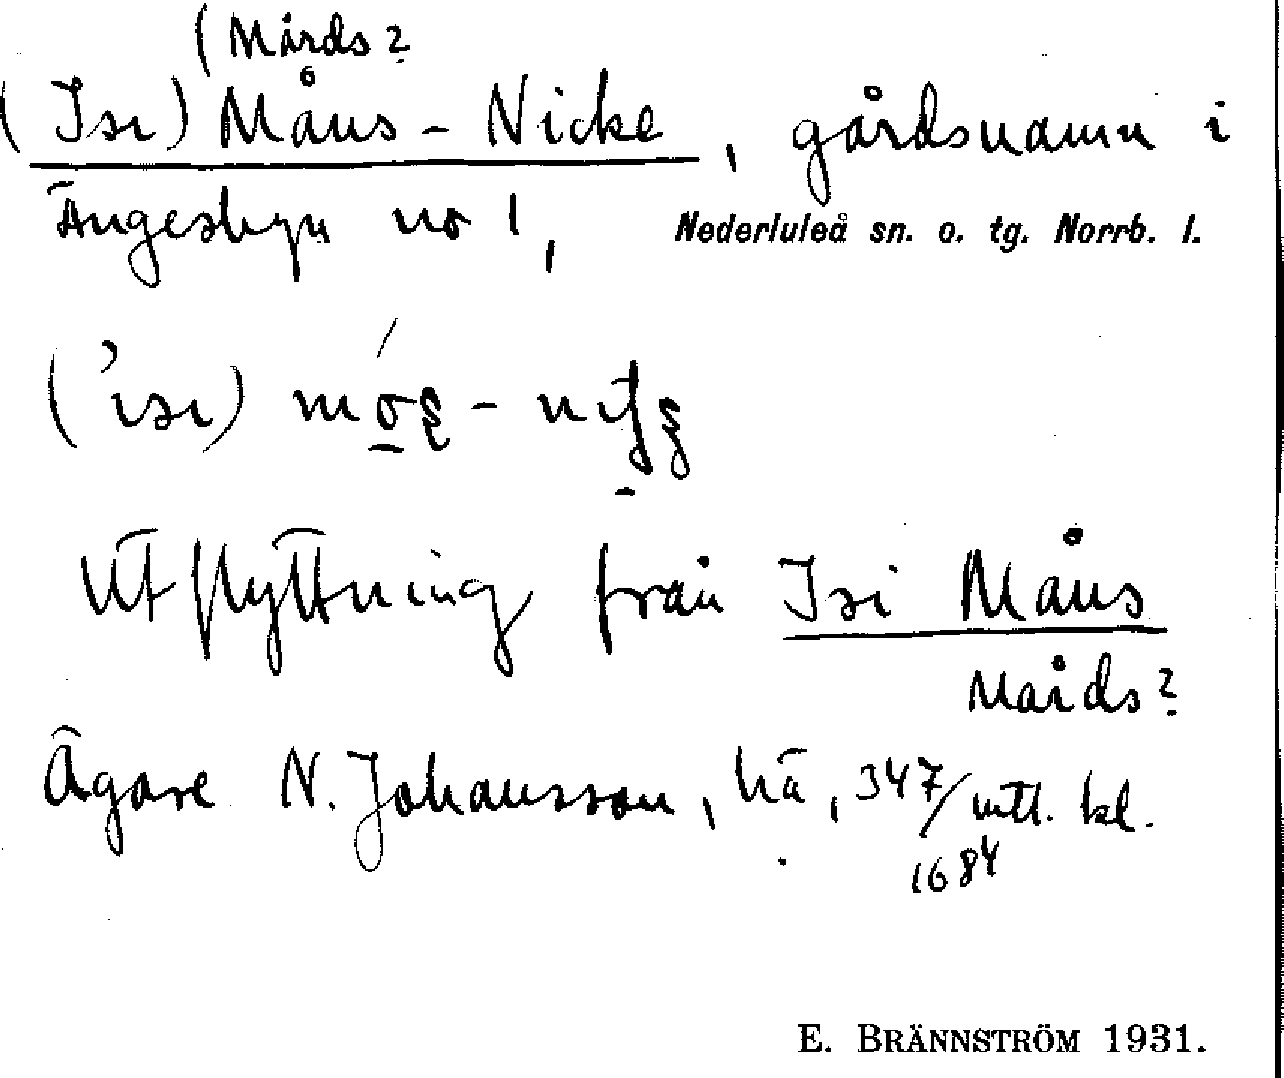 (Mårds?
(Isi) Måns-Nicke, gårdsnamn i
Ängesbyn no 1, Nederluleå sn. o. tg. Norrb. l.
('isı)
Utflyttning från Isi Måns
Mårds?
Ägare N. Johansson, hä, 347/1684 mtl. kl.
E. BRÄNNSTRÖM 1931.